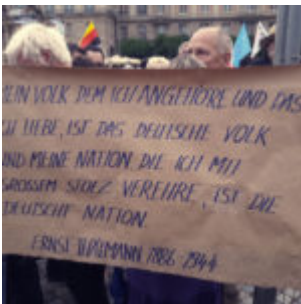 MEIN VOLK DEM ICH ANGEHÖRE UND DAS
ICH LIEBE, IST DAS DEUTSCHE VOLK
UND MEINE NATION, DIE ICH MIT
GROSSEM STOLZ VEREHRE, IST DIE
DEUTSCHE NATION.
ERNST THÄLMANN, 1886-1944